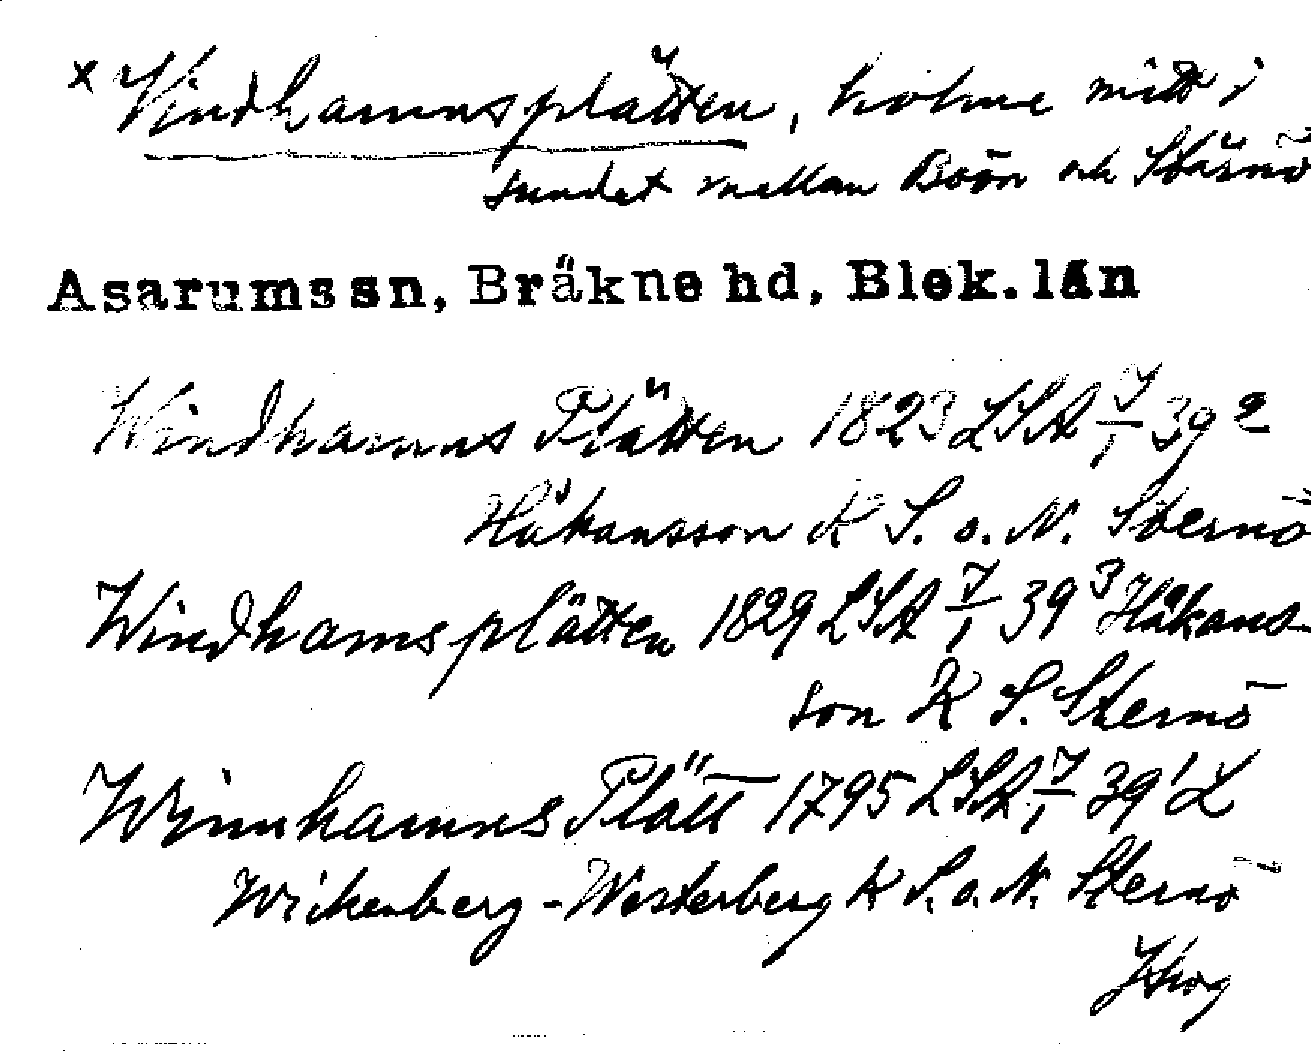 x Vindhamnsplätten, holme mitt i
sundet mellan Boön och Stärnö
Asarumssn, Bräkne hd, Blek. län
Windhamns Plätten 1823 LSA 7/1 39 2
Håkansson K S. o. N. Sternö
Windhamsplätten 1829 LSA 7/1 39 3 Håkans-
son K S. Sternö
Winnhamns Plätt 1795 LSA 7/1 39 1 L
Wickenberg-Westerberg K S. o. N. Sternö